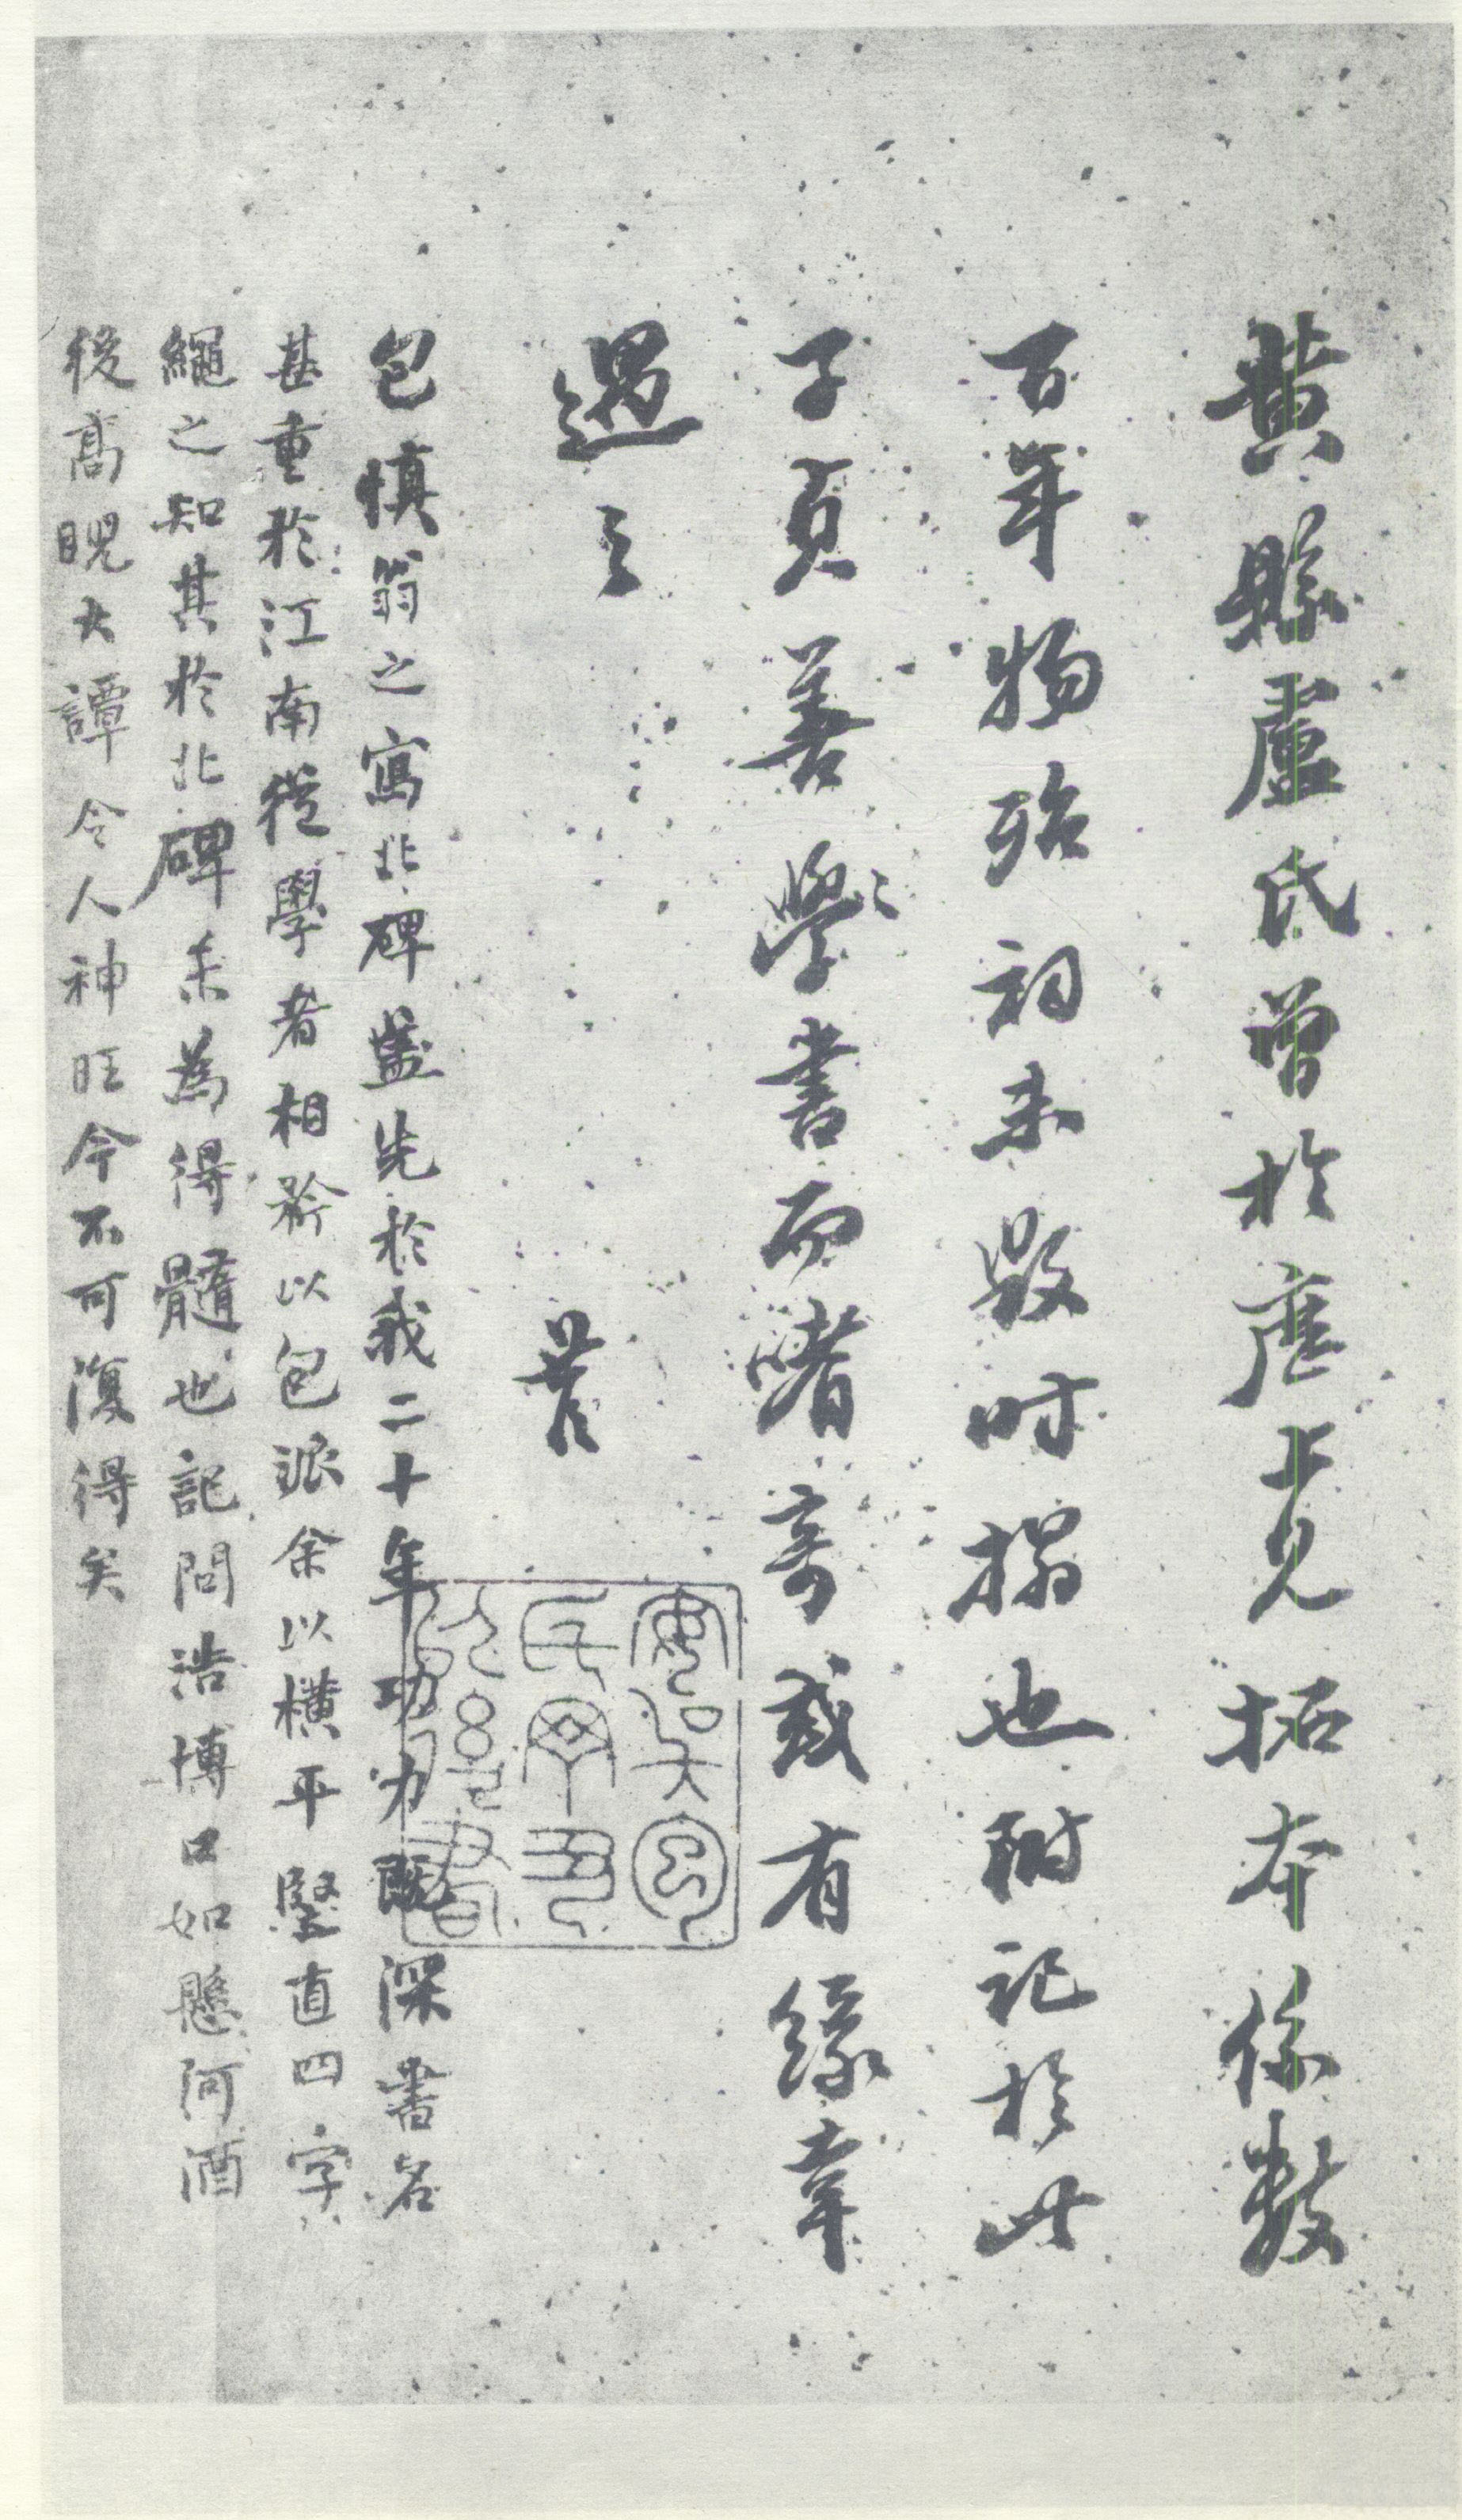 黃縣盧氏曾於應上見拓本係數
百年物殆祠未毀時搨也附記於此
子貞善學書而嗜奇或有緣幸
遇之
包慎翁之寫北碑蓋先於我二十年功力既深書名
甚重於江南從學者相矜以包派余以橫平豎直四字
繩之知其於北碑未為得髓也記問浩博口如懸河酒
後高睨大譚令人神旺今不可復得矣